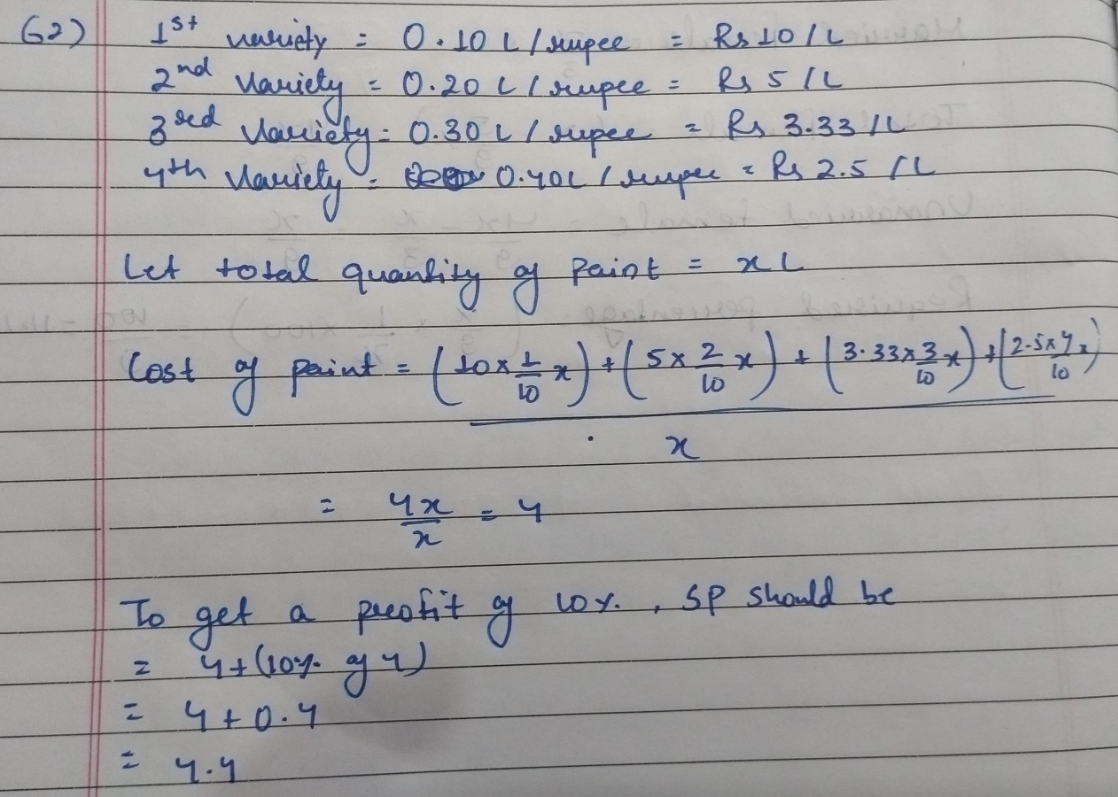 62) 1st variety = 0.10 L / rupee = Rs 10 / L
2nd variety = 0.20 L / rupee = Rs 5 / L
3rd variety = 0.30 L / rupee = Rs 3.33 / L
4th variety = 0.40L / rupee = Rs 2.5 / L
Let total quantity of paint = x L
Cost of paint = (10 × 1/10 x) + (5 × 2/10 x) + (3.33 × 3/10 x) + (2.5 × 4/10 x)
x
= 4x/x = 4
To get a profit of 10%, SP should be
= 4 + (10% of 4)
= 4 + 0.4
= 4.4